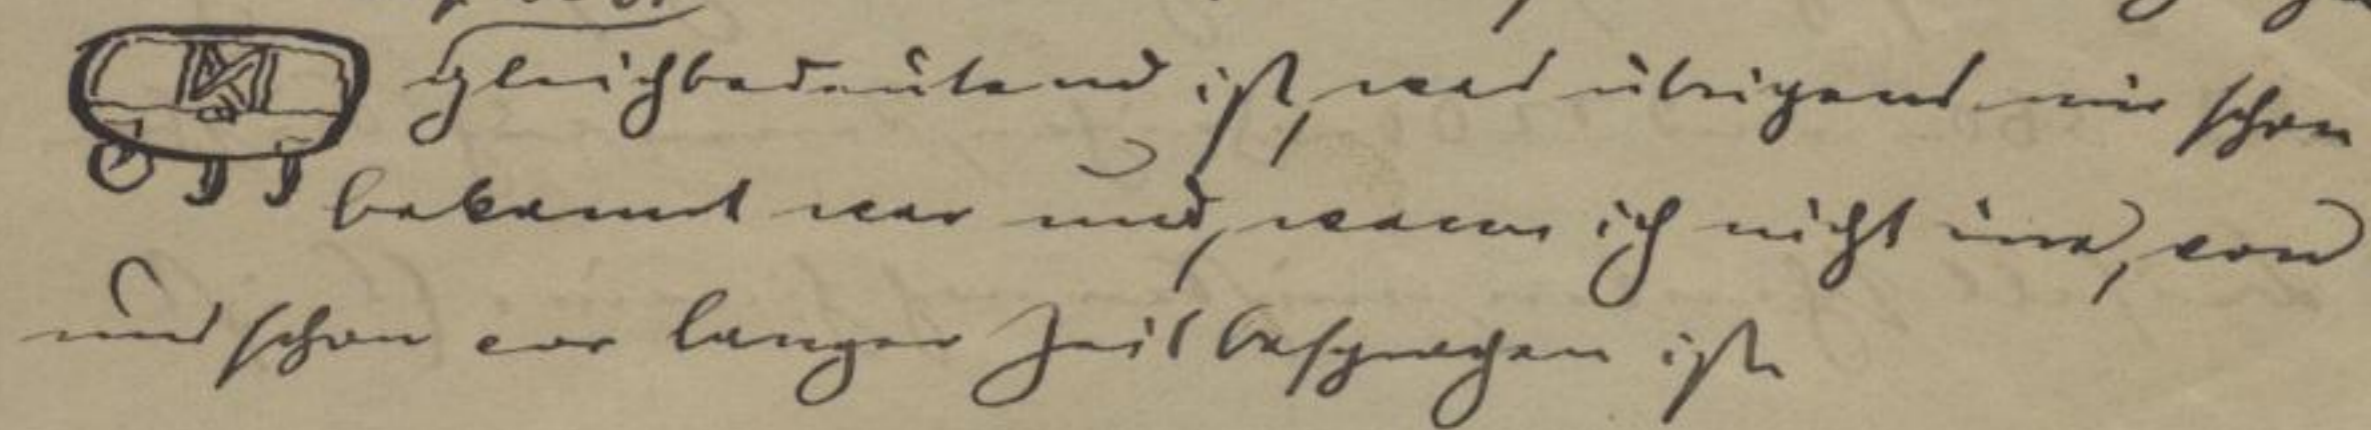 gleichbedeutend ist, was übrigens mir schon
bekannt war und, wenn ich nicht irre, von
uns schon vor langer Zeit besprochen ist.